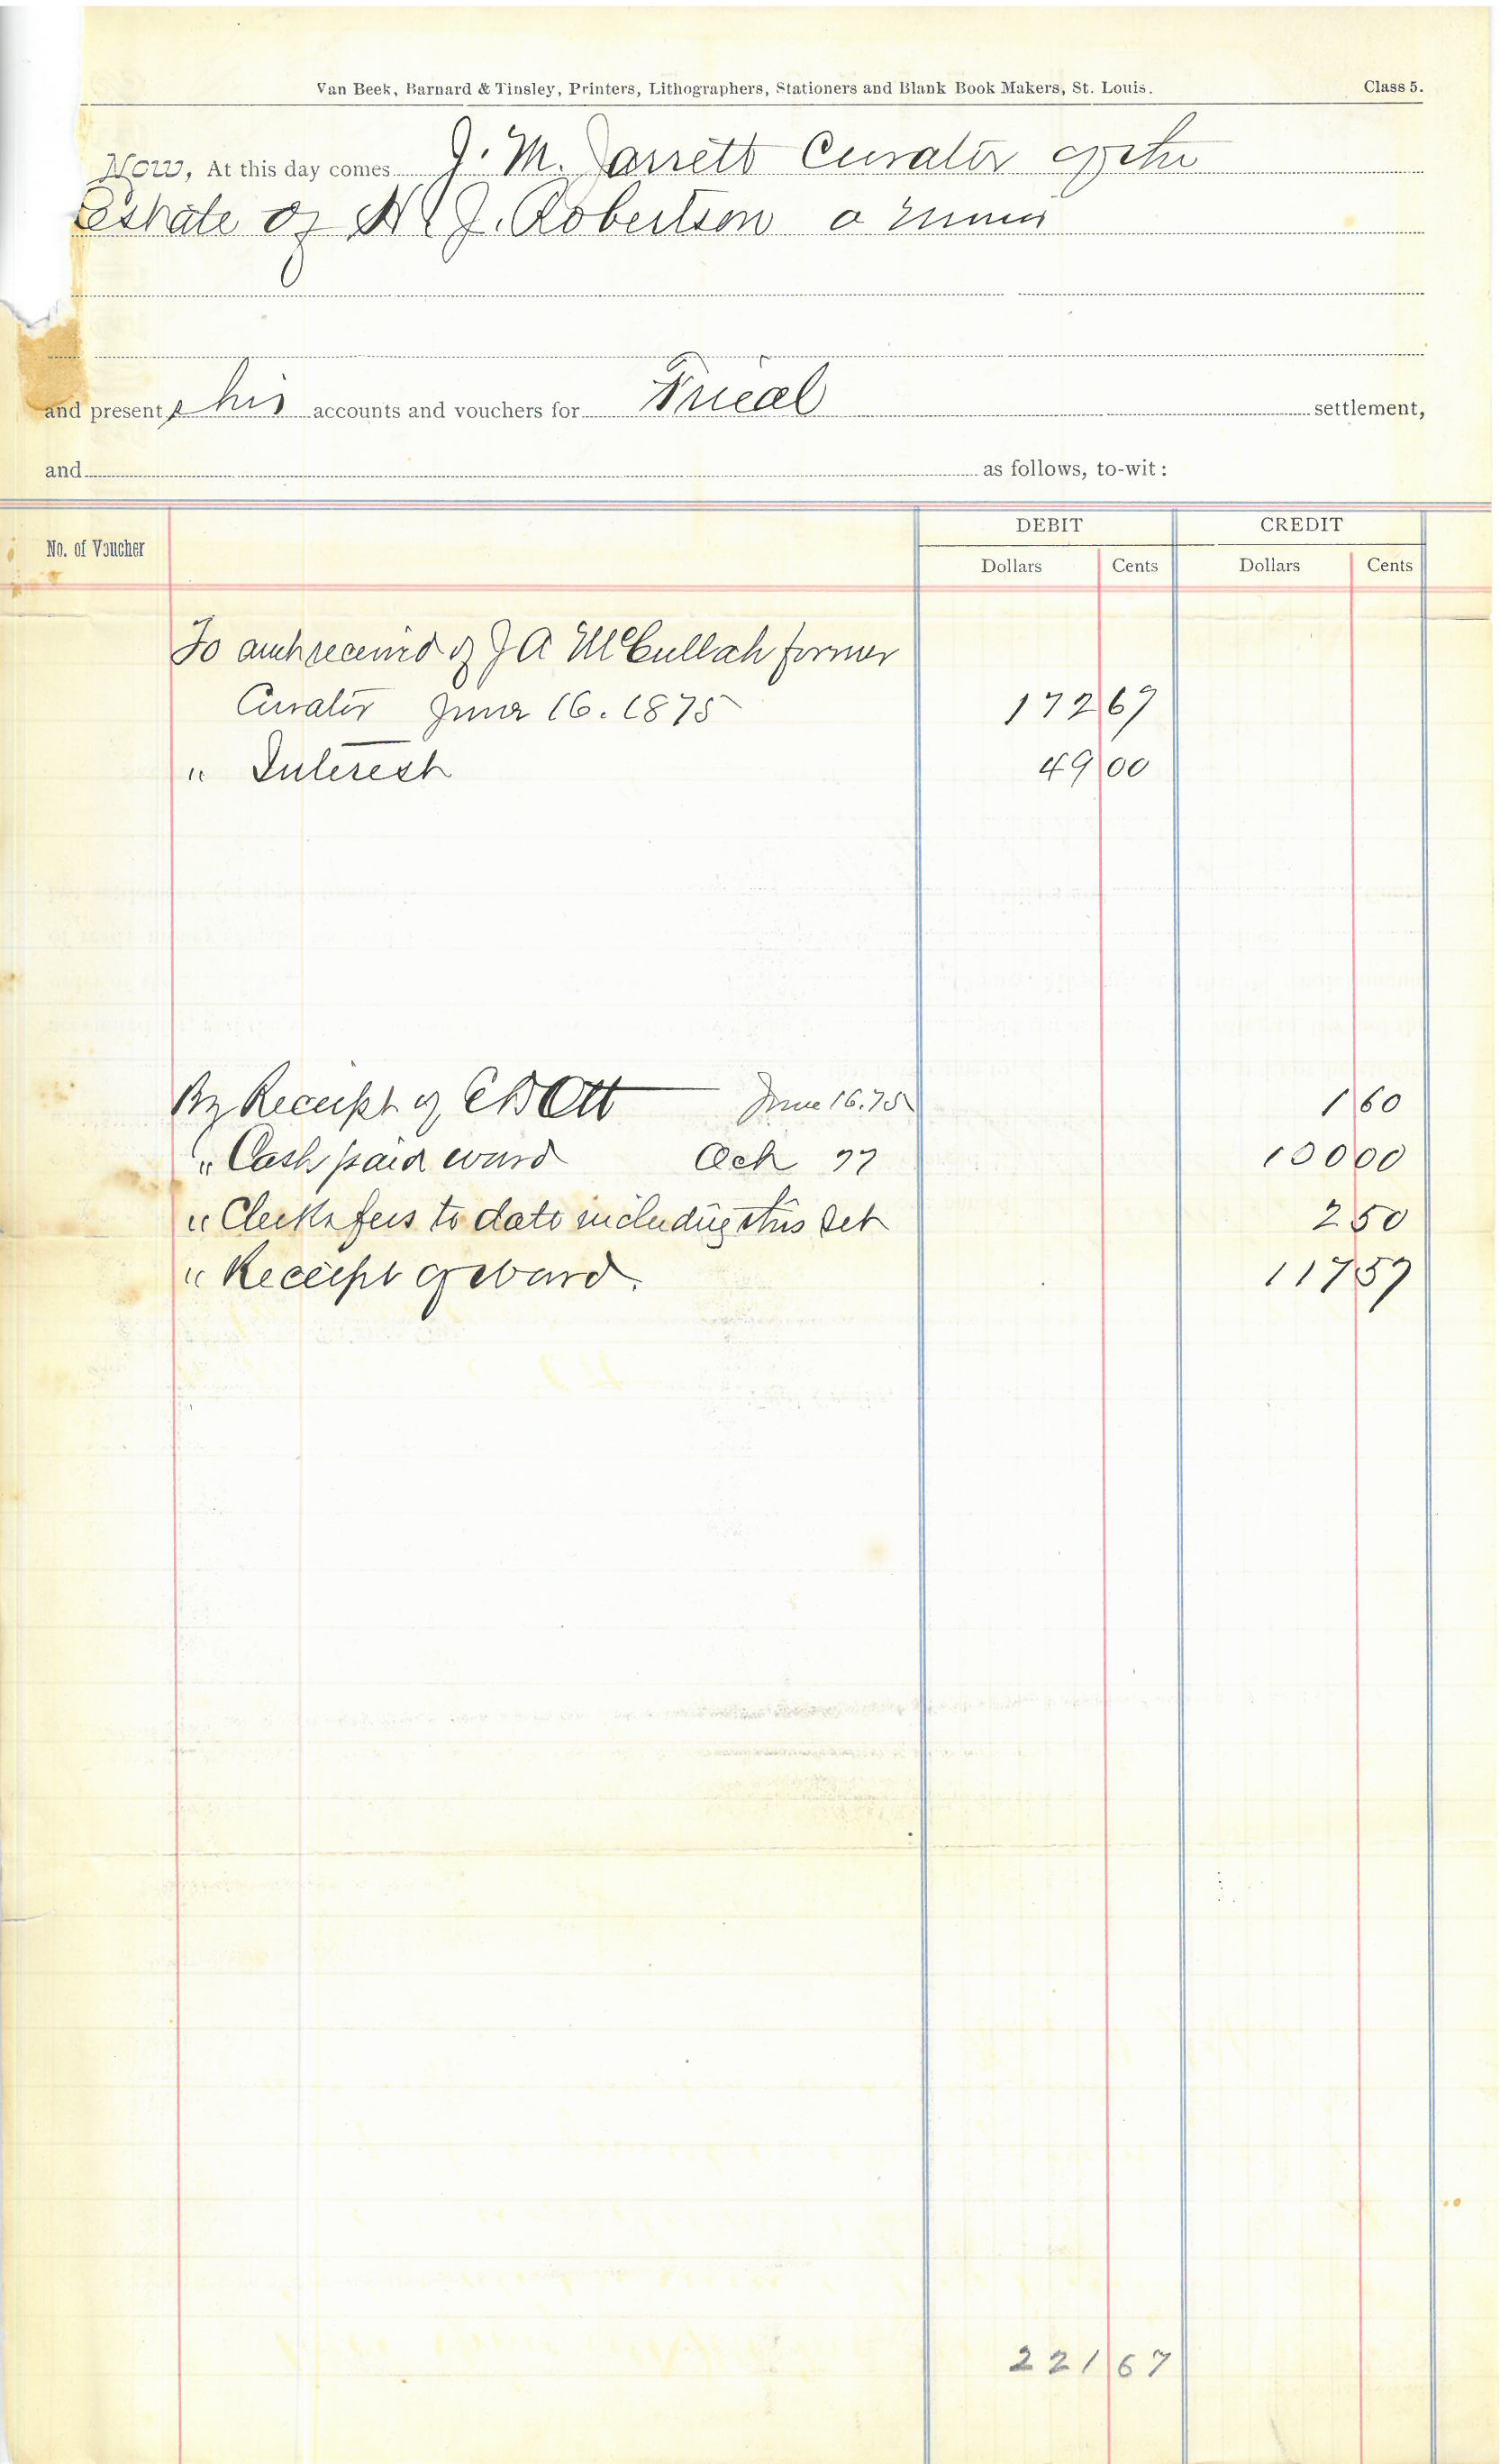 Van Beek, Barnard & Tinsley, Printers, Lithographers, Stationers and Blank Book Makers, St. Louis. Class 5.
Now, At this day comes J. M. Jarrett Curator of the
Estate of N J. Robertson a minor
and present s his accounts and vouchers for Final settlement,
and as follows, to-wit:
No. of Voucher DEBIT CREDIT
Dollars Cents Dollars Cents
To amt received of J A McCullah former
Curator June 16. 1875 172 67
" Interest 49 00
By Receipt of C B Ott June 16.75 1 60
" Cash paid ward Oct 77 100 00
" Clerks fees to date including this Set 2 50
" Receipt of ward. 117 57
221 67